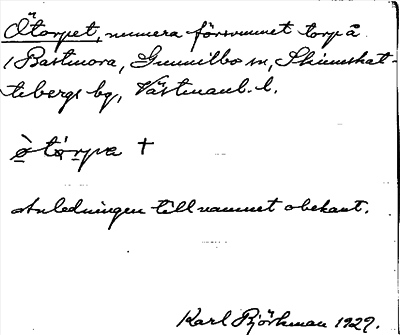 Ötorpet, numera försvunnet torp å
/ Bastmora, Gunnilbo sn, Skinnskat-
teberg bg, Västmanl. l.
ò tórpa †
Anledningen till namnet obekant.
Karl Björkman 1929.